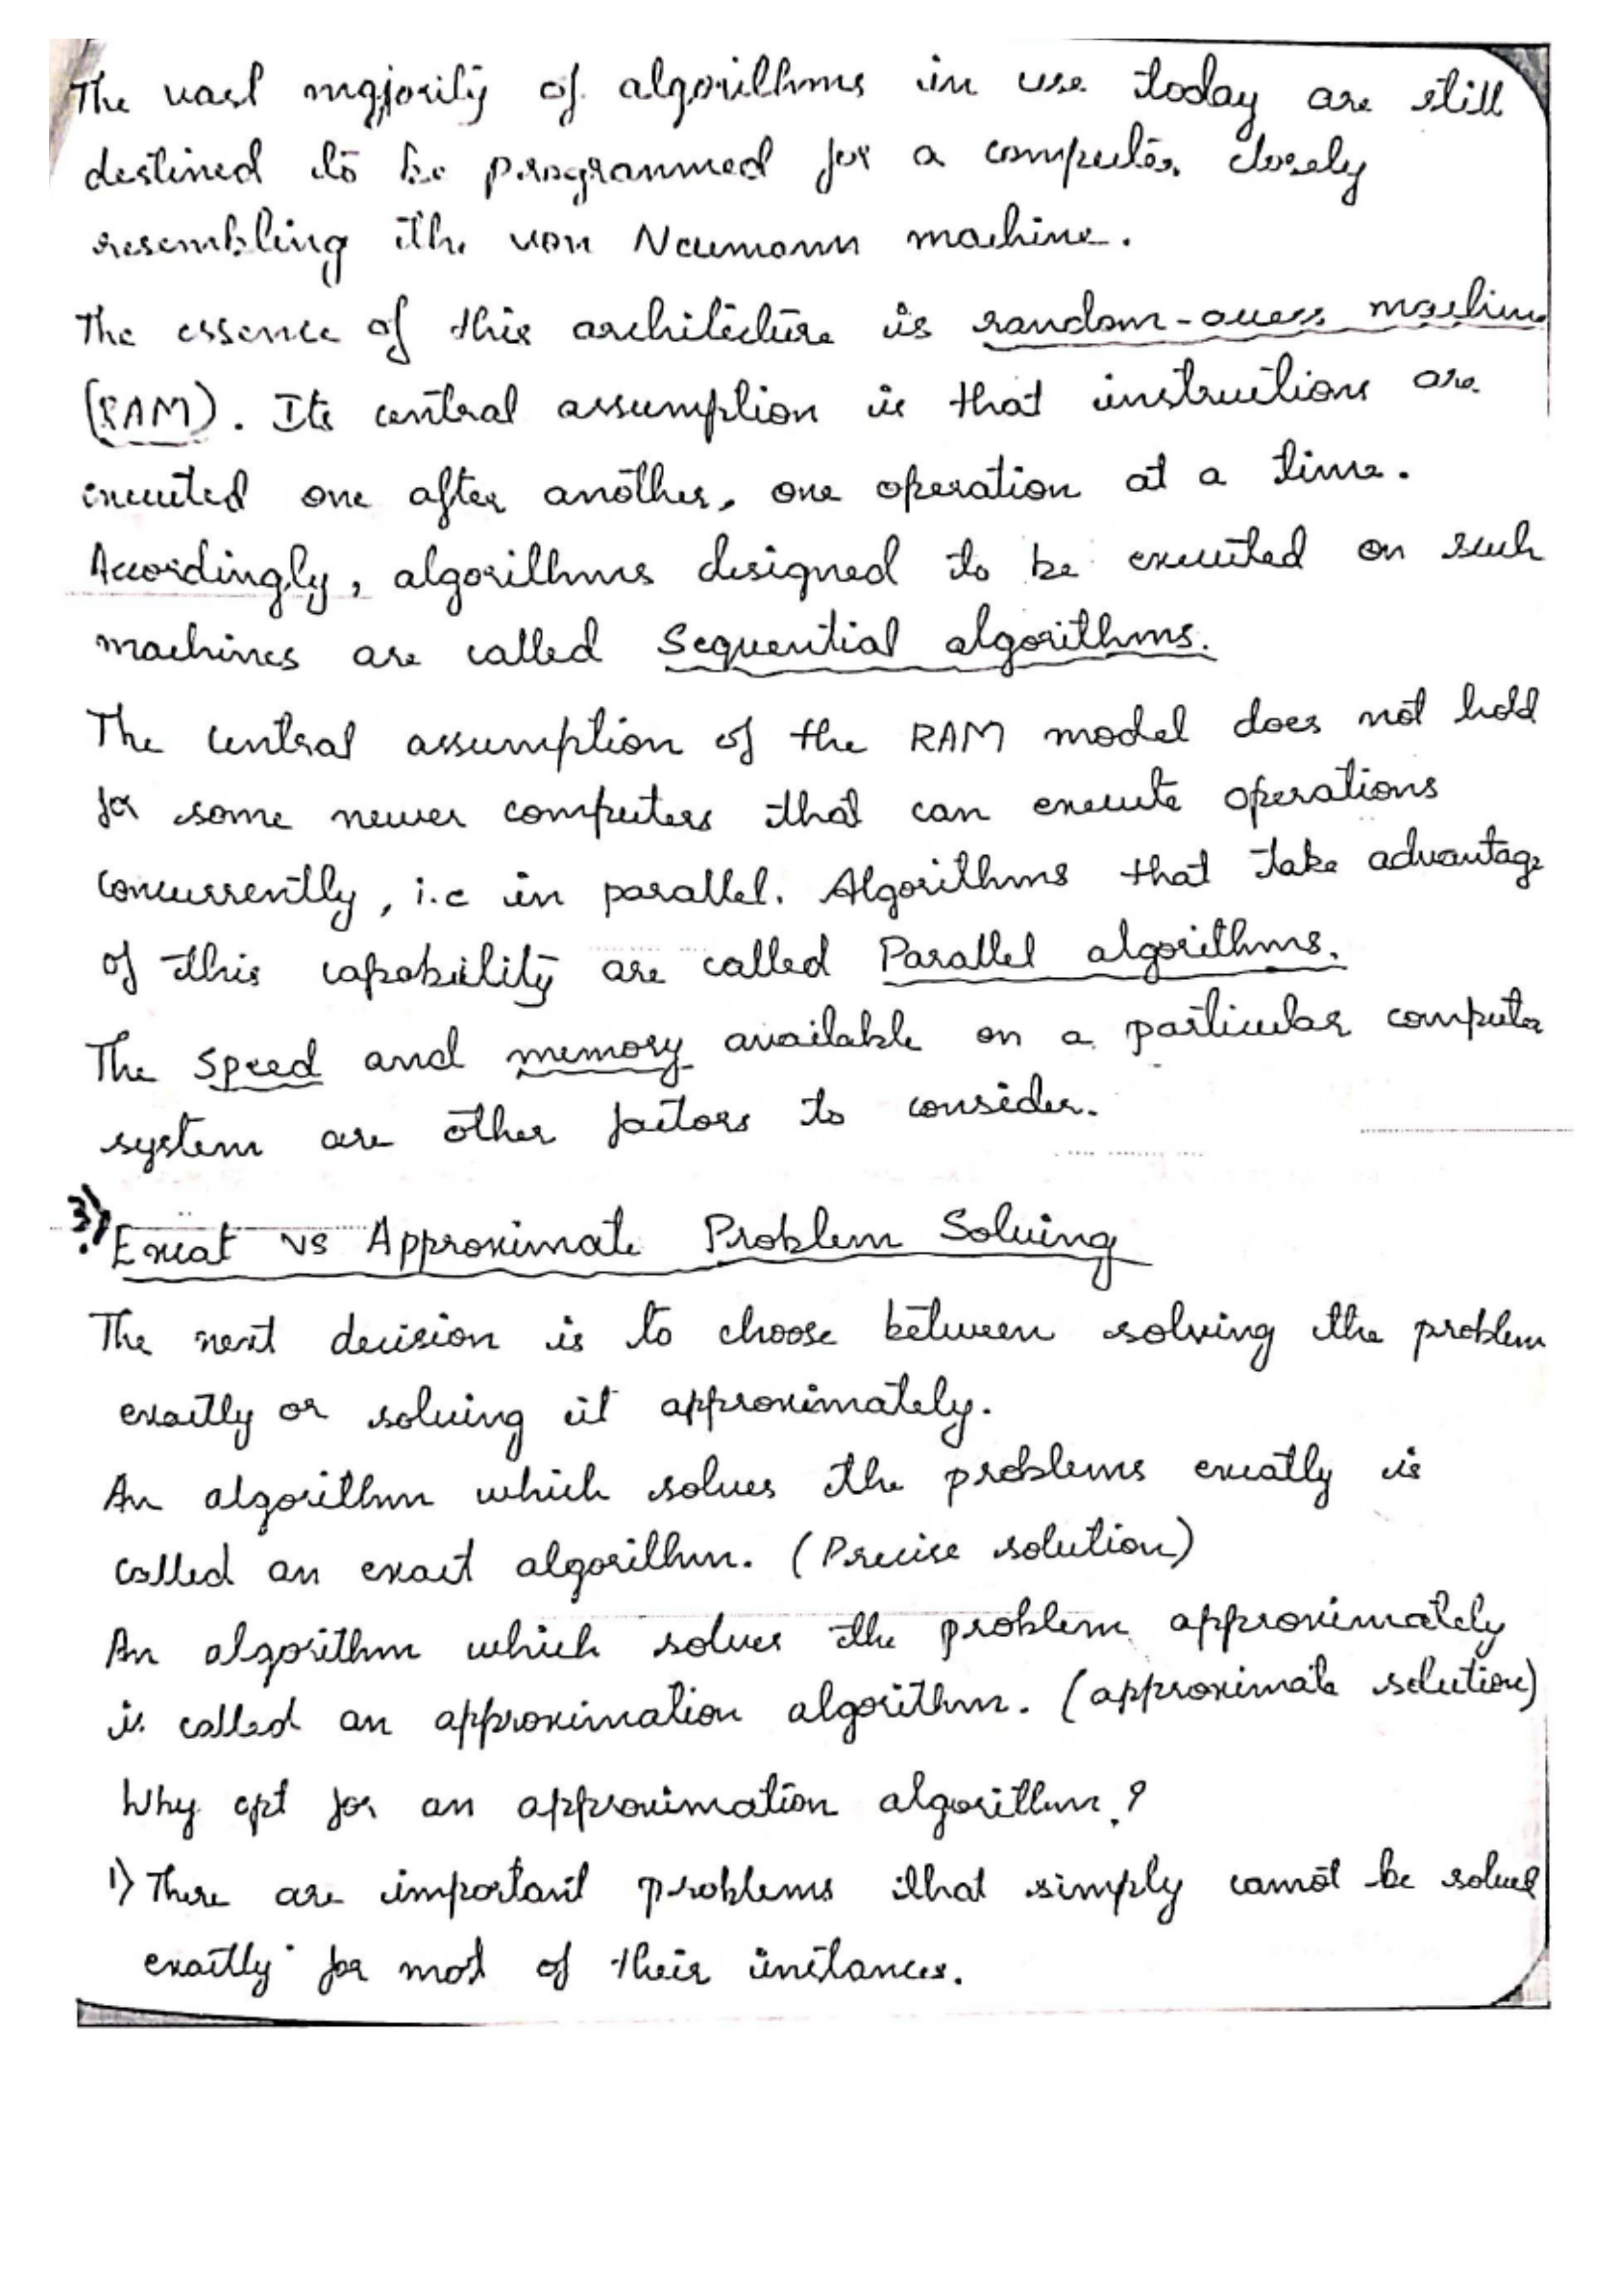 The vast majority of algorithms in use today are still
destined to be programmed for a computer closely
resembling the von Neumann machine.
The essence of this architecture is random-access machine
(RAM). Its central assumption is that instructions are
executed one after another, one operation at a time.
Accordingly, algorithms designed to be executed on such
machines are called Sequential algorithms.
The central assumption of the RAM model does not hold
for some newer computers that can execute operations
concurrently, i.e in parallel. Algorithms that take advantage
of this capability are called Parallel algorithms.
The speed and memory available on a particular computer
system are other factors to consider.
3) Exact vs Approximate Problem Solving
The next decision is to choose between solving the problem
exactly or solving it approximately.
An algorithm which solves the problems exactly is
called an exact algorithm. (Precise solution)
An algorithm which solves the problem approximately
is called an approximation algorithm. (approximate solution)
Why opt for an approximation algorithm?
1) There are important problems that simply cannot be solved
exactly for most of their instances.